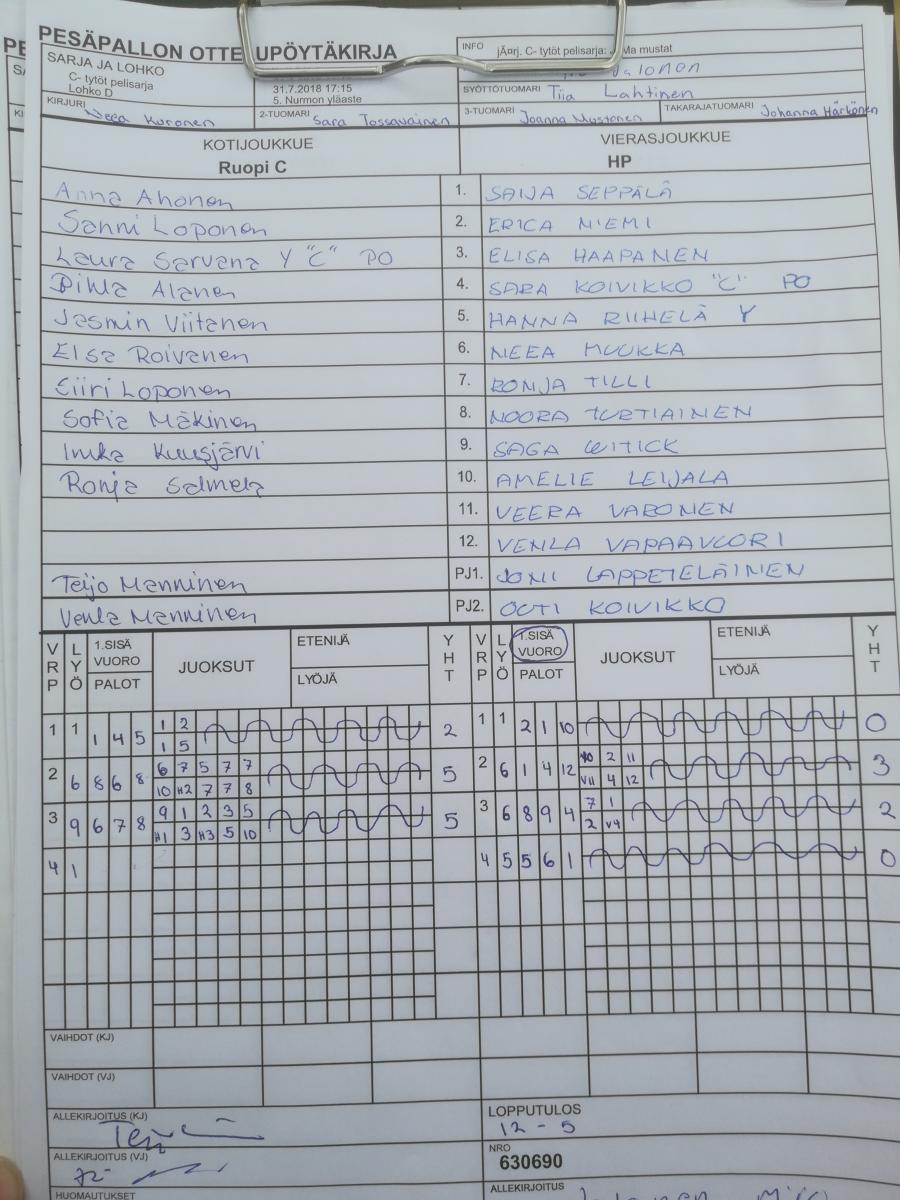 PESÄPALLON OTTELUPÖYTÄKIRJA
SARJA JA LOHKO
C- tytöt pelisarja
Lohko D
31.7.2018 17:15
5. Nurmon yläaste
INFO jÄ¤rj. C- tytöt pelisarja: Ma mustat
SYÖTTÖTUOMARI Tiia Lahtinen
KIRJURI Neea Kuronen
2-TUOMARI Sara Tossavainen
3-TUOMARI Joanna Mustonen
TAKARAJATUOMARI Johanna Härkönen
KOTIJOUKKUE VIERASJOUKKUE
Ruopi C HP
Anna Ahonen 1. SAIJA SEPPÄLÄ
Sanni Loponen 2. ERICA NIEMI
Laura Sarvana Y "C" PO 3. ELISA HAAPANEN
Pihla Alanen 4. SARA KOIVIKKO "C" PO
Jasmin Viitanen 5. HANNA RIIHELÄ Y
Elsa Roivanen 6. NEEA MUUKKA
Eliri Loponen 7. RONJA TILLI
Sofia Mäkinen 8. NOORA TURTIAINEN
Inka Kuusjärvi 9. SAGA WITICK
Ronja Salmela 10. AMELIE LEIJALA
11. VEERA VARONEN
12. VENLA VAPAAVUORI
Teijo Manninen PJ1. JONI LAPPETELÄINEN
Venla Manninen PJ2. OUTI KOIVIKKO
VRP LYÖ 1.SISÄ VUORO PALOT JUOKSUT ETENIJÄ LYÖJÄ YHT VRP LYÖ 1.SISÄ VUORO PALOT JUOKSUT ETENIJÄ LYÖJÄ YHT
1 1 1 4 5 1 2 2 1 1 2 1 10 0
1 5
2 6 8 6 8 6 7 5 7 7 5 2 6 1 4 12 10 2 11 3
10 H2 7 7 8 VII 4 12
3 9 6 7 8 9 1 2 3 5 5 3 6 8 9 4 7 1 2
H1 3 H3 5 10 2 V4
4 1 4 5 5 6 1 0
VAIHDOT (KJ)
VAIHDOT (VJ)
ALLEKIRJOITUS (KJ)
LOPPUTULOS
12 - 5
ALLEKIRJOITUS (VJ)
NRO
630690
HUOMAUTUKSET
ALLEKIRJOITUS